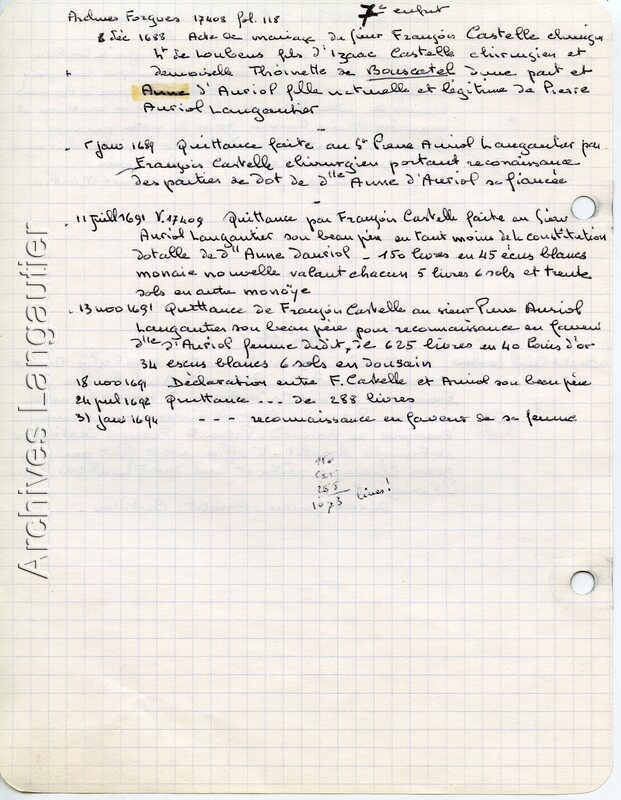 Archives Forgues 17408 fol. 118 7e enfant
8 déc 1688 Acte de mariage du sieur François Castelle chirurgien
de Loubens fils d'Izaac Castelle chirurgien et
demoiselle Thoinette de Bouscatel d'une part et
Anne d'Auriol fille naturelle et légitime de Pierre
Auriol Langautier
janv 1689 Quittance faite au Sr Pierre Auriol Langautier par
François Castelle chirurgien portant reconaissance
des parties de dot de dlle Anne d'Auriol sa fiancée
11 juill 1691 V. 17409 Quittance par François Castelle faite au sieur
Auriol Langautier son beau père en tant moins de la constitution
dotalle de dlle Anne Dauriol - 150 livres en 45 écus blancs
monaie nouvelle valant chacun 5 livres 6 sols et trente
sols en autre monoye
13 nov 1691 Quittance de François Castelle au sieur Pierre Auriol
Langautier son beau père pour reconnaissance en faveur
dlle d'Auriol femme dudit, de 625 livres en 40 Louis d'or
34 escus blancs 6 sols en dousain
18 nov 1691 Déclaration entre F. Castelle et Auriol son beau père
24 juil 1692 Quittance --- de 288 livres
31 janv 1694 --- reconnaissance en faveur de sa femme
150
625
288
1073 livres!
Archives Langautier